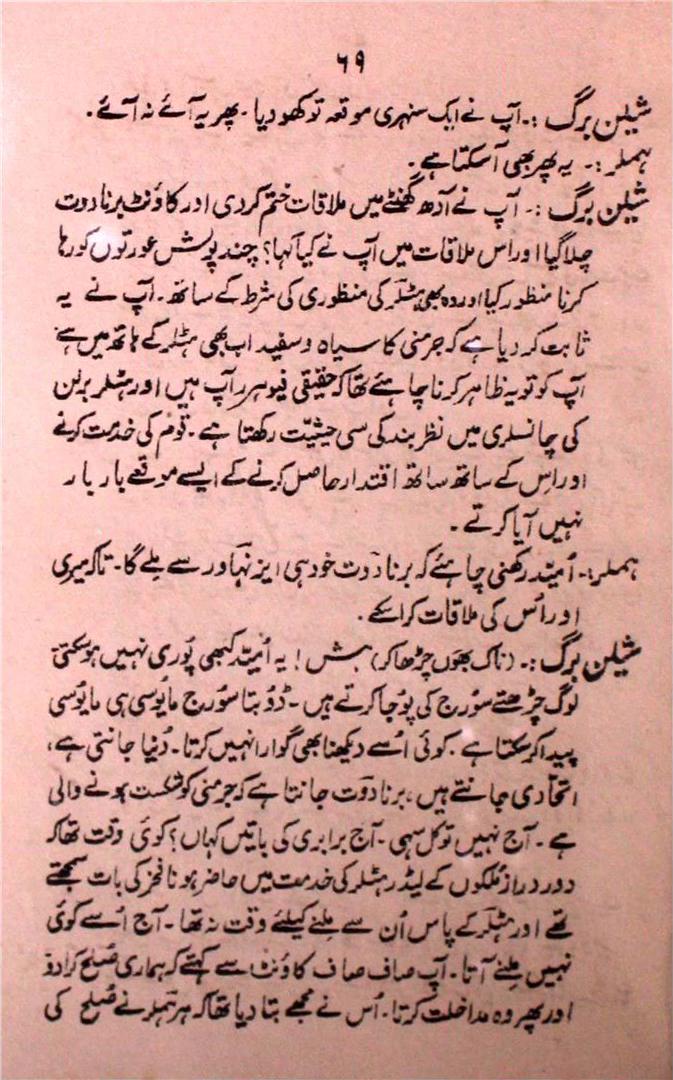 ۶۹
شیلن برگ :۔ آپ نے ایک سنہری موقعہ تو کھو دیا۔ پھر یہ آئے نہ آئے۔
ہملر :۔ یہ پھر بھی آ سکتا ہے۔
شیلن برگ :۔ آپ نے آدھ گھنٹے میں ملاقات ختم کر دی اور کاؤنٹ برنادوت
چلا گیا اور اس ملاقات میں آپ نے کیا کہا؟ چند پولش عورتوں کو رہا
کرنا منظور کیا اور وہ بھی ہٹلر کی منظوری کی شرط کے ساتھ۔ آپ نے یہ
ثابت کر دیا ہے کہ جرمنی کا سیاہ و سفید اب بھی ہٹلر کے ہاتھ میں ہے
آپ کو تو یہ ظاہر کرنا چاہئے تھا کہ حقیقی فیوہرر آپ ہیں اور ہٹلر برلن
کی چانسلری میں نظر بند کی سی حیثیت رکھتا ہے۔ قوم کی خدمت کرنے
اور اس کے ساتھ ساتھ اقتدار حاصل کرنے کے ایسے موقعے بار بار
نہیں آیا کرتے۔
ہملر :۔ اُمید رکھنی چاہئے کہ برنادوت خود ہی ایزنہاور سے ملے گا۔ تاکہ میری
اور اُس کی ملاقات کرا سکے۔
شیلن برگ :۔ (ناک بھوں چڑھا کر) ہش! یہ اُمید کبھی پُوری نہیں ہو سکتی
لوگ چڑھتے سُورج کی پُوجا کرتے ہیں۔ ڈوبتا سُورج مایُوسی ہی مایُوسی
پیدا کر سکتا ہے۔ کوئی اُسے دیکھنا بھی گوارا نہیں کرتا۔ دُنیا جانتی ہے،
اتحادی جانتے ہیں، برنادوت جانتا ہے کہ جرمنی کو شکست ہونے والی
ہے۔ آج نہیں تو کل سہی۔ آج برابری کی باتیں کہاں؟ کوئی وقت تھا کہ
دور دراز ملکوں کے لیڈر ہٹلر کی خدمت میں حاضر ہونا فخر کی بات سمجھتے
تھے اور ہٹلر کے پاس اُن سے ملنے کیلئے وقت نہ تھا۔ آج اُسے کوئی
نہیں ملنے آتا۔ آپ صاف صاف کاؤنٹ سے کہتے کہ ہماری صُلح کرا دو
اور پھر وہ مداخلت کرتا۔ اُس نے مجھے بتا دیا تھا کہ ہر ہملر نے صُلح کی